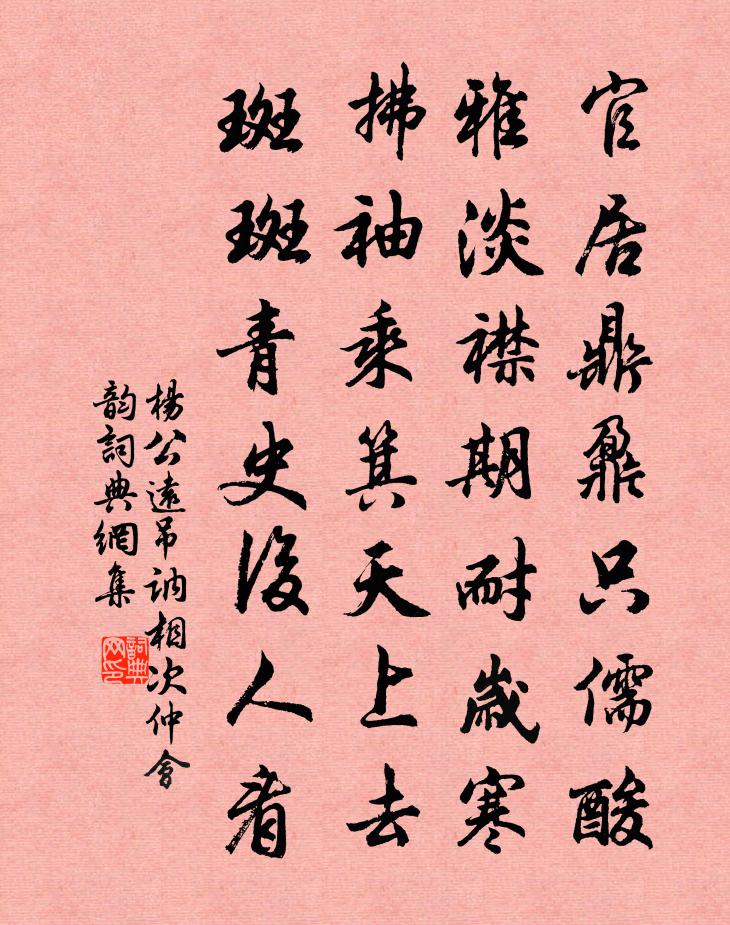 官居鼎鼐只儒酸
雅淡襟期耐歲寒
拂袖乘箕天上去
斑斑青史後人看
楊公遠吊訥相次仲會
韵詞典網集
詞典
网印